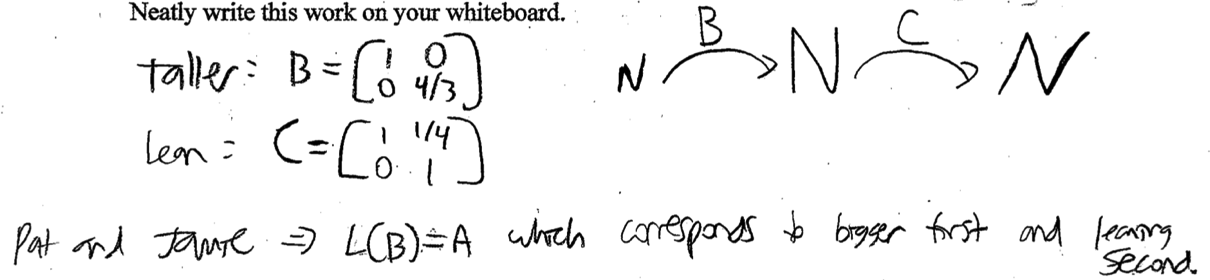 Neatly write this work on your whiteboard.
taller: B = [1 0
0 4/3]
lean: C = [1 1/4
0 1]
N B N C N
Pat and Jamie ⇒ L(B)=A which corresponds to bigger first and leaning second.